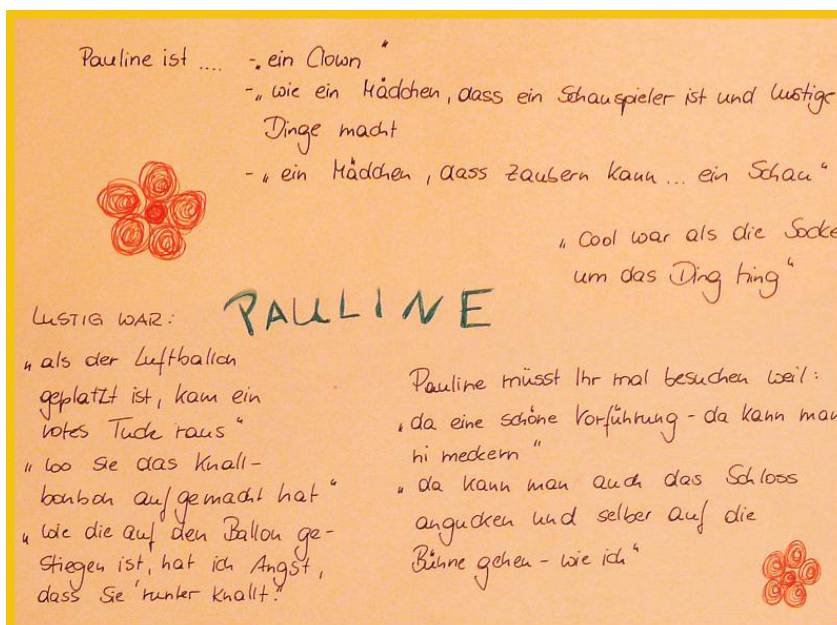 Pauline ist .... -„ ein Clown "
-„ wie ein Mädchen, dass ein Schauspieler ist und lustige
Dinge macht
-„ ein Mädchen, dass zaubern kann... ein Schau "
„ Cool war als die Socke
um das Ding hing "
PAULINE
LUSTIG WAR:
„ als der Luftballon
geplatzt ist, kam ein
rotes Tuch raus "
„ wo sie das Knall-
bonbon aufgemacht hat "
„ wie die auf den Ballon ge-
stiegen ist, hat ich Angst,
dass sie 'runter knallt."
Pauline müsst Ihr mal besuchen weil:
„ da eine schöne Vorführung - da kann man
ni meckern "
„ da kann man auch das Schloss
angucken und selber auf die
Bühne gehen - wie ich "